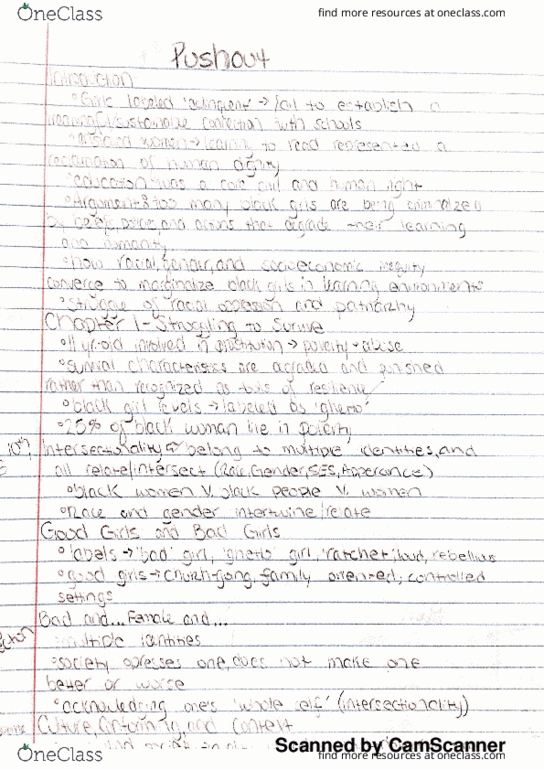 OneClass
find more resources at oneclass.com
Pushout
Introduction
°Girls labeled 'delinquent' → fail to establish a
meaningful/sustainable connection with schools
women → learning to read represented a
reclamation of human dignity
°education was a core civil and human right
°Argument: too many black girls are being criminalized
by beliefs, policies, and actions that degrade their learning
and humanity
°how racial, gender, and socioeconomic inequity
converge to marginalize black girls in learning environments
°struggle of racial oppression and patriarchy
Chapter 1 - Struggling to Survive
°11 yr. old involved in prostitution → poverty + abuse
°survival characteristics are degraded and punished
rather than recognized as tools of resiliency
°black girl levels → labeled as 'ghetto'
°25% of black woman live in poverty
Intersectionality → belong to multiple identities, and
all relate/intersect (Race, Gender, SES, Apperance)
°black women v. black people v. women
°Race and gender intertwine/relate
Good Girls and Bad Girls
°labels → 'bad' girl, 'ghetto' girl, 'ratchet', loud, rebellious
°good girls → church-going, family oriented, controlled
settings
Bad and... Female and...
°multiple identities
°society opresses one, does not make one
better or worse
°acknowledging one's 'whole self' (intersectionality)
Culture, Conforming, and Context
Scanned by CamScanner
OneClass
find more resources at oneclass.com